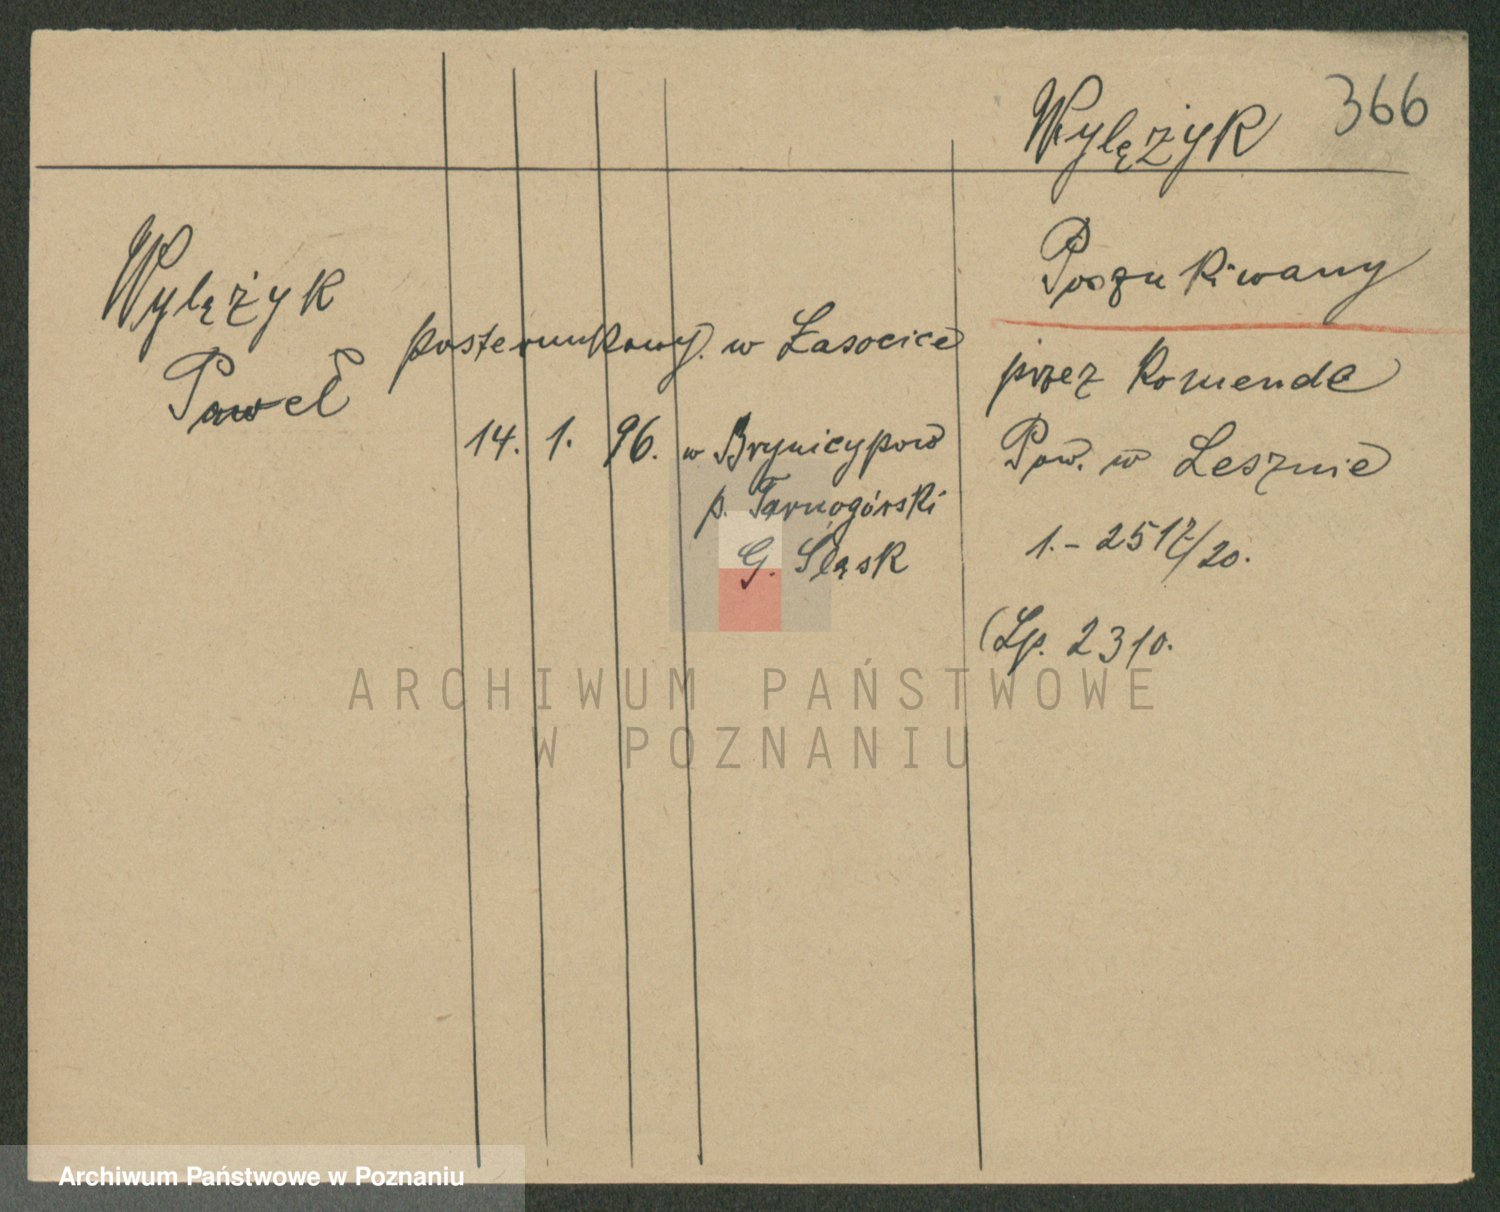 Wylężyk 366
Wylężyk
Paweł
posterunkowy. w Łasocice
14. 1. 96. w Brynicy pow
p. Tarnogórski
G. Śląsk
Poszukiwany
przez Komende
Pow. w Lesznie
1.- 2517/20.
(Lp. 2310.
ARCHIWUM PAŃSTWOWE
W POZNANIU
Archiwum Państwowe w Poznaniu